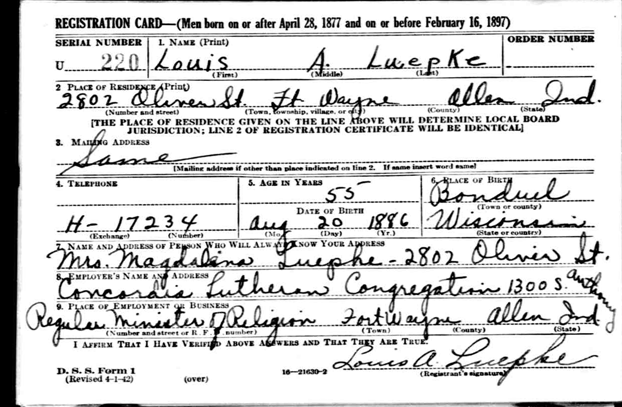 REGISTRATION CARD—(Men born on or after April 28, 1877 and on or before February 16, 1897)
SERIAL NUMBER 1. NAME (Print) ORDER NUMBER
U 220 Louis A. Luepke
(First) (Middle) (Last)
2 PLACE OF RESIDENCE (Print)
2802 Oliver St. Ft Wayne Allen Ind.
(Number and street) (Town, township, village, or city) (County) (State)
[THE PLACE OF RESIDENCE GIVEN ON THE LINE ABOVE WILL DETERMINE LOCAL BOARD
JURISDICTION; LINE 2 OF REGISTRATION CERTIFICATE WILL BE IDENTICAL]
3. MAILING ADDRESS
Same
[Mailing address if other than place indicated on line 2. If same insert word same]
4. TELEPHONE 5. AGE IN YEARS 6. PLACE OF BIRTH
55 Bonduel
DATE OF BIRTH (Town or county)
H- 17234 Aug 20 1886 Wisconsin
(Exchange) (Number) (Mo.) (Day) (Yr.) (State or country)
7. NAME AND ADDRESS OF PERSON WHO WILL ALWAYS KNOW YOUR ADDRESS
Mrs. Magdalena Luepke - 2802 Oliver St.
8. EMPLOYER'S NAME AND ADDRESS
Concordia Lutheran Congregation 1300 S. Anthony
9. PLACE OF EMPLOYMENT OR BUSINESS
Regular Minister of Religion Fort Wayne Allen Ind
(Number and street or R. F. D. number) (Town) (County) (State)
I AFFIRM THAT I HAVE VERIFIED ABOVE ANSWERS AND THAT THEY ARE TRUE.
Louis A. Luepke
D. S. S. Form 1
(Revised 4-1-42) (over) 16—21630-2 (Registrant's signature)